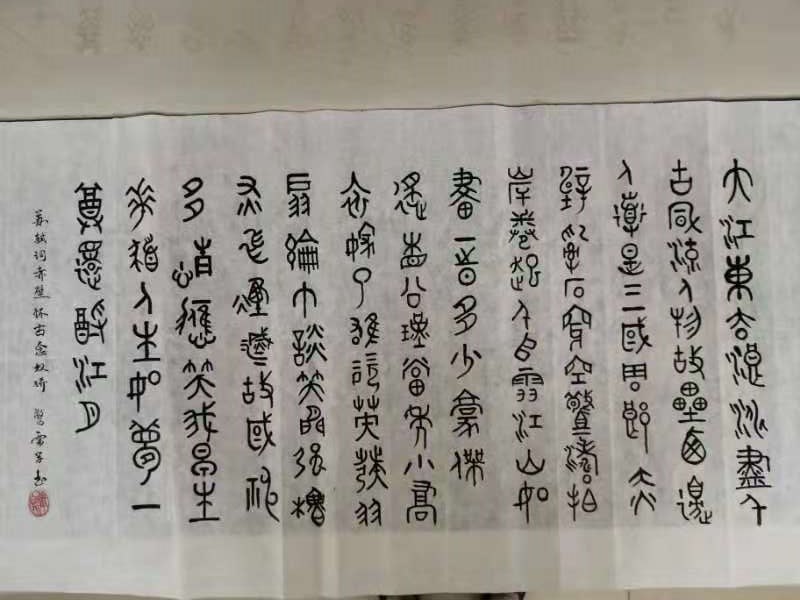 大江東去浪淘盡千
古風流人物故壘西邊
人道是三國周郎赤
壁亂石穿空驚濤拍
岸卷起千堆雪江山如
畫一時多少豪傑
遙想公瑾當年小喬
初嫁了雄姿英發羽
扇綸巾談笑間強櫓
灰飛煙滅故國神
多情應笑我早生
華髮人生如夢一
尊還酹江月
苏轼词赤壁怀古念奴娇